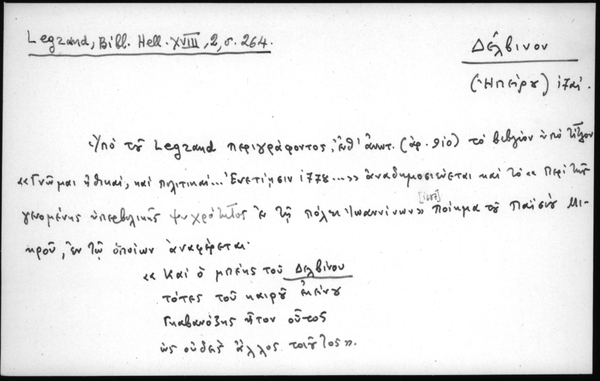 Legrand, Bibl. Hell. XVIII, 2, σ. 264.
Δέλβινον
(Ἠπείρου)
Ὑπὸ τοῦ Legrand περιγράφοντος, ἐνθ' ἀνωτ. (ἀρ. 910) τὸ βιβλίον ὑπὸ τίτλον
«Γνῶμαι ἠθικαί, καὶ πολιτικαί... Ἐνετίῃσιν 177... » ἀναδημοσιεύεται καὶ τὸ «Περὶ τῆς
γενομένης ὑπερβολικῆς ψυχρότητος ἐν τῇ πόλει Ἰωαννίνων» ποίημα τοῦ Παϊσίου Μι-
κροῦ, ἐν τῷ ὁποίῳ ἀναφέρεται·
« Καὶ ὁ μπέης τοῦ Δελβίνου
τότες τοῦ καιροῦ ἐκείνου
ἦτον οὗτος
ὡς οὐδεὶς ἄλλος τοιοῦτος».